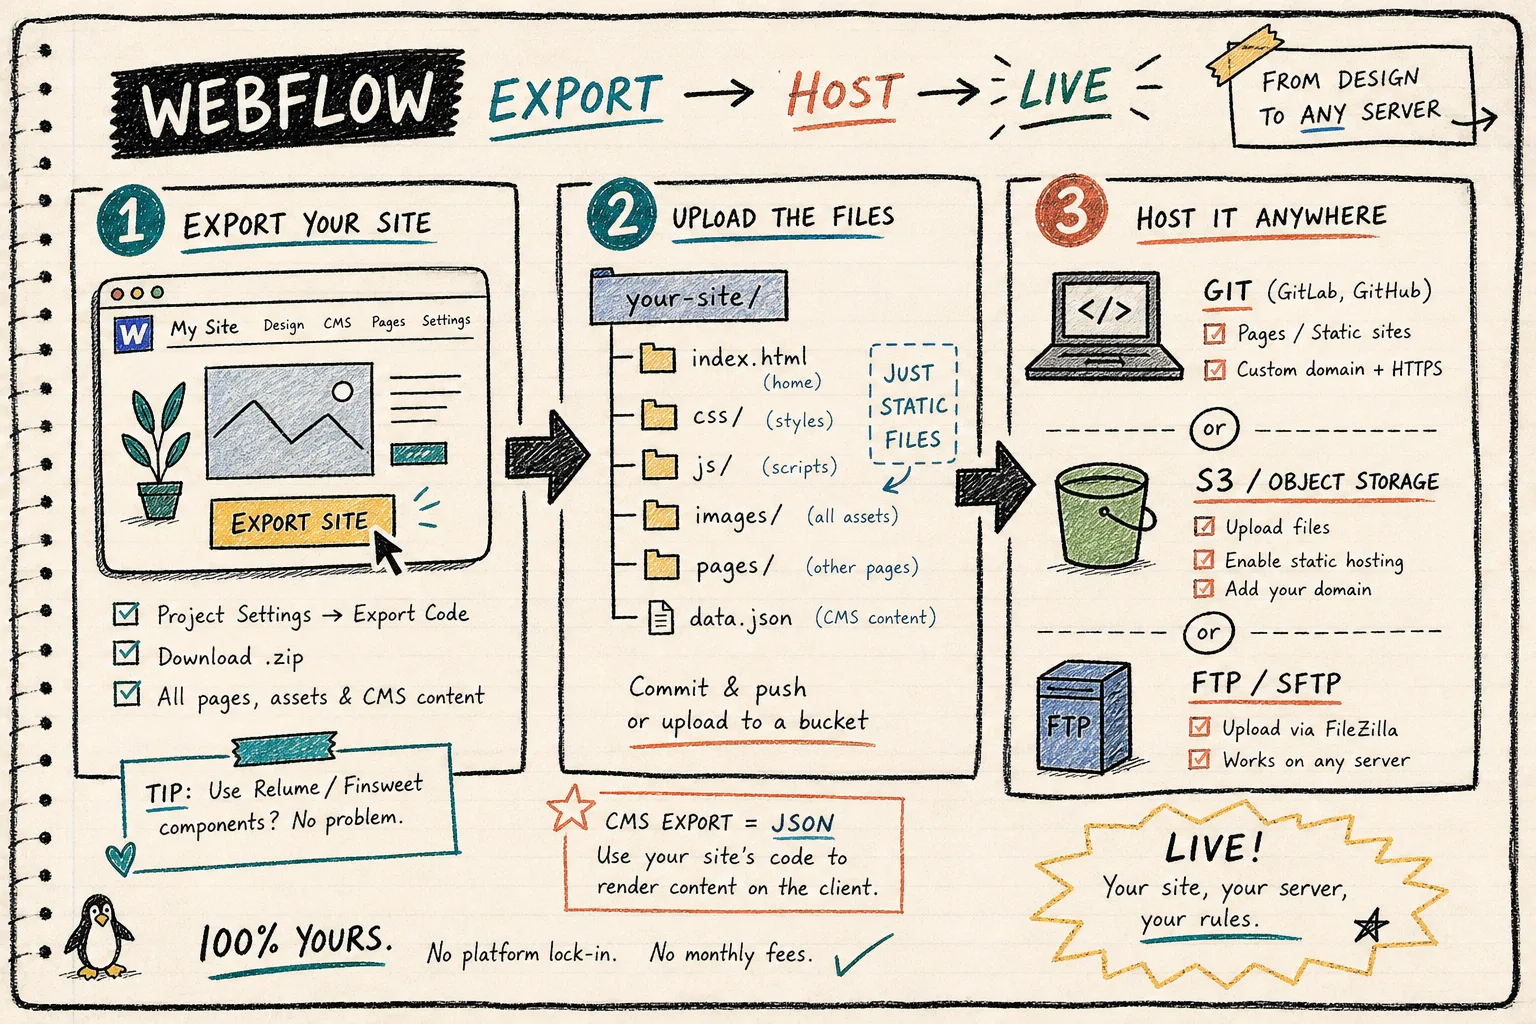 WEBFLOW EXPORT → HOST → LIVE
FROM DESIGN
TO ANY SERVER →
1 EXPORT YOUR SITE
W My Site Design CMS Pages Settings
EXPORT SITE
Project Settings → Export Code
Download .zip
All pages, assets & CMS content
TIP: Use Relume / Finsweet
components? No problem.
2 UPLOAD THE FILES
your-site/
index.html
(home)
css/ (styles)
js/ (scripts)
images/ (all assets)
pages/ (other pages)
data.json (CMS content)
JUST
STATIC
FILES
Commit & push
or upload to a bucket
CMS EXPORT = JSON
Use your site's code to
render content on the client.
3 HOST IT ANYWHERE
</>
GIT (GitLab, GitHub)
Pages / Static sites
Custom domain + HTTPS
or
S3 / OBJECT STORAGE
Upload files
Enable static hosting
Add your domain
or
FTP
FTP / SFTP
Upload via FileZilla
Works on any server
LIVE!
Your site, your server,
your rules.
100% YOURS. No platform lock-in. No monthly fees.